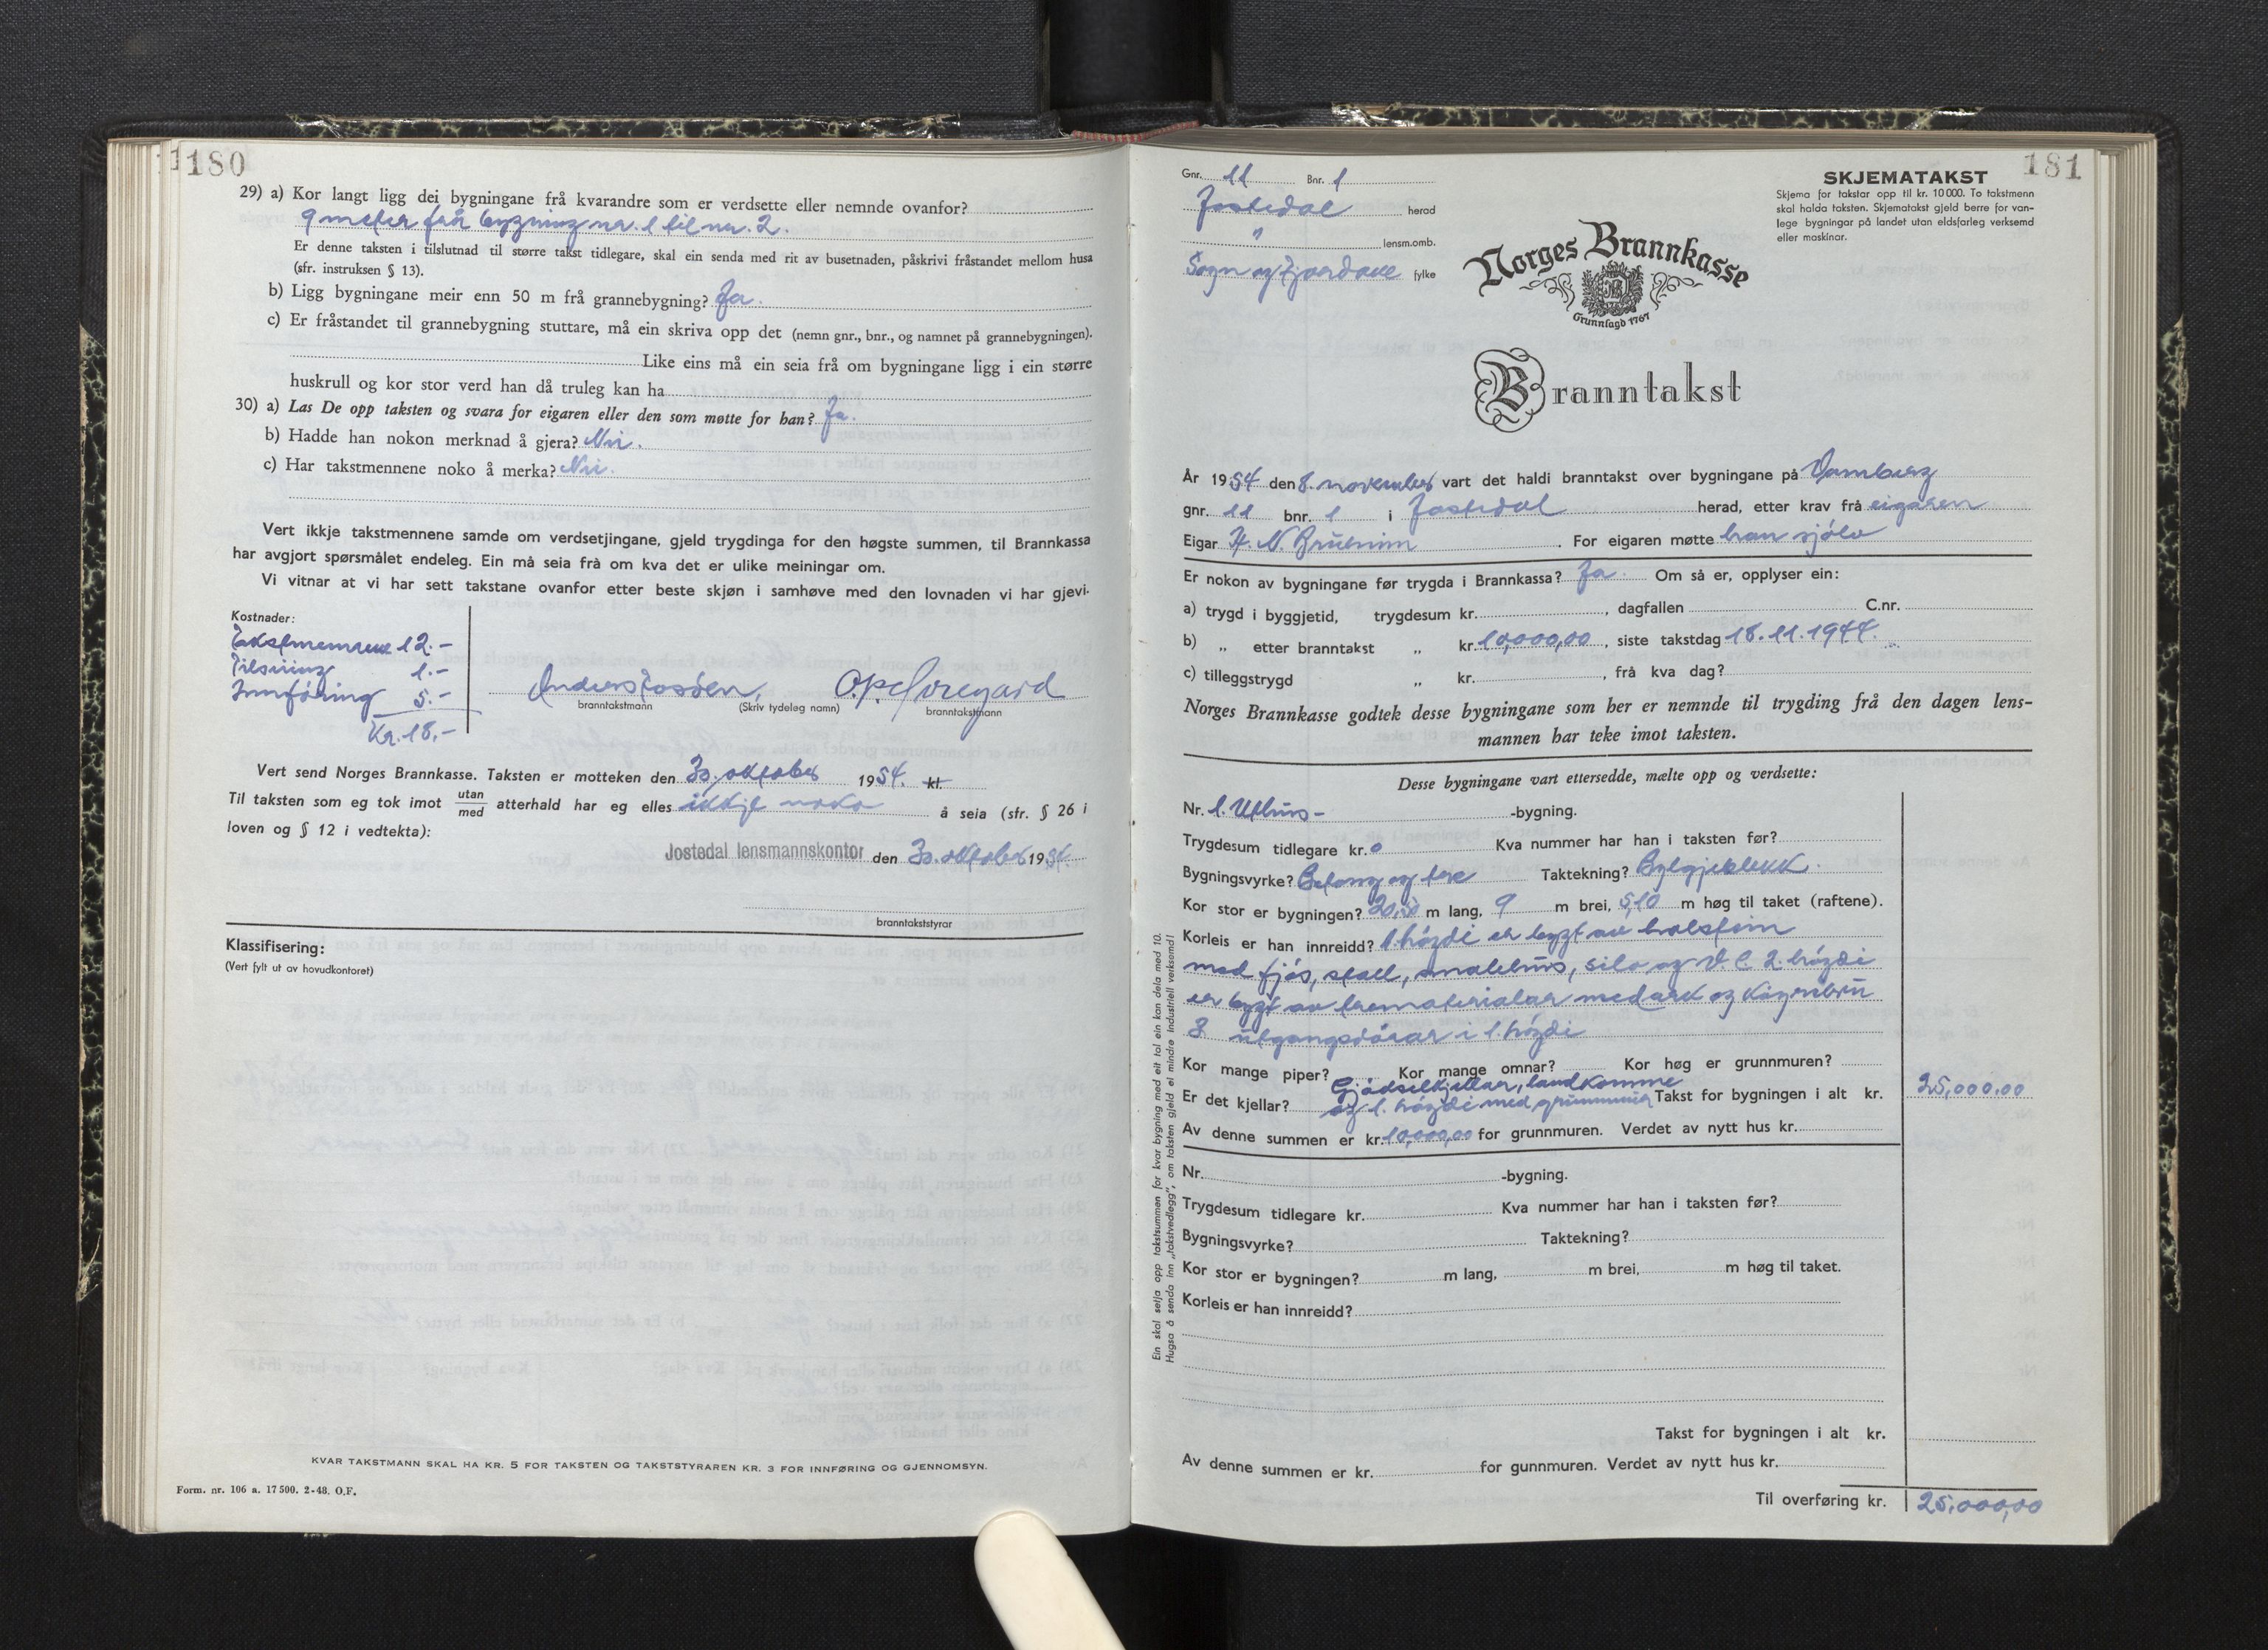 180
29) a) Kor langt ligg dei bygningane frå kvarandre som er verdsette eller nemnde ovanfor?
9 meter frå bygning nr. 1 til nr. 2.
Er denne taksten i tilslutnad til større takst tidlegare, skal ein senda med rit av busetnaden, påskrivi fråstandet mellom husa
(sfr. instruksen § 13).
b) Ligg bygningane meir enn 50 m frå grannebygning? Ja.
c) Er fråstandet til grannebygning stuttare, må ein skriva opp det (nemn gnr., bnr., og namnet på grannebygningen).
Like eins må ein seia frå om bygningane ligg i ein større
huskrull og kor stor verd han då truleg kan ha
30) a) Las De opp taksten og svara for eigaren eller den som møtte for han? Ja.
b) Hadde han nokon merknad å gjera? Nei.
c) Har takstmennene noko å merka? Nei.
Vert ikkje takstmennene samde om verdsetjingane, gjeld trygdinga for den høgste summen, til Brannkassa
har avgjort spørsmålet endeleg. Ein må seia frå om kva det er ulike meiningar om.
Vi vitnar at vi har sett takstane ovanfor etter beste skjøn i samhøve med den lovnaden vi har gjevi.
Kostnader:
Takstmennene 12.-
Tilsiing 1.-
Innføring 5.-
Kr. 18,-
branntakstmann (Skriv tydeleg namn) branntakstmann
Vert send Norges Brannkasse. Taksten er motteken den 30. oktober 1954. kl.
Til taksten som eg tok imot utan/med atterhald har eg elles ikkje noko å seia (sfr. § 26 i
loven og § 12 i vedtekta):
Jostedal lensmannskontor den 30. oktober 1954.
branntakststyrar
Klassifisering:
(Vert fylt ut av hovudkontoret)
KVAR TAKSTMANN SKAL HA KR. 5 FOR TAKSTEN OG TAKSTSTYRAREN KR. 3 FOR INNFØRING OG GJENNOMSYN.
Form. nr. 106 a. 17 500. 2-48. O.F.
181
Gnr. 11 Bnr. 1
Jostedal herad
" lensm.omb.
Sogn og Fjordane fylke
SKJEMATAKST
Skjema for takstar opp til kr. 10 000. To takstmenn
skal halda taksten. Skjematakst gjeld berre for van-
lege bygningar på landet utan eldsfarleg verksemd
eller maskinar.
Norges Brannkasse
Grunnlagd 1767
Branntakst
År 1954 den 8. november vart det haldi branntakst over bygningane på
gnr. 11 bnr. 1 i Jostedal herad, etter krav frå eigaren
Eigar H. N. Bruheim. For eigaren møtte han sjølv
Er nokon av bygningane før trygda i Brannkassa? Ja. Om så er, opplyser ein:
a) trygd i byggjetid, trygdesum kr. , dagfallen C.nr.
b) „ etter branntakst „ kr. 10,000,00, siste takstdag 18.11.1944.
c) tilleggstrygd „ kr. , frå kva dag?
Norges Brannkasse godtek desse bygningane som her er nemnde til trygding frå den dagen lens-
mannen har teke imot taksten.
Desse bygningane vart ettersedde, mælte opp og verdsette:
Nr. 1. Uthus- -bygning.
Trygdesum tidlegare kr. 0 Kva nummer har han i taksten før?
Bygningsvyrke? Betong og tre Taktekning? Bylgjeblekk.
Kor stor er bygningen? 20,50 m lang, 9 m brei, 5,10 m høg til taket (raftene).
Korleis er han innreidd? 1 høgdi er bygt av holstein
med fjøs, stall, smalehus, silo og V. C. 2. høgdi
er bygt av trematerialar med ark og køyrebru
3 utgangsdørar i 1. høgdi
Kor mange piper? Kor mange omnar? Kor høg er grunnmuren?
Gjødselkjellar, landkomme
Er det kjellar? og 1. høgdi med grunnmur Takst for bygningen i alt kr. 25,000.00
Av denne summen er kr. 10,000,00 for grunnmuren. Verdet av nytt hus kr.
Nr. -bygning.
Trygdesum tidlegare kr. Kva nummer har han i taksten før?
Bygningsvyrke? Taktekning?
Kor stor er bygningen? m lang, m brei, m høg til taket.
Korleis er han innreidd?
Takst for bygningen i alt kr.
Av denne summen er kr. for gunnmuren. Verdet av nytt hus kr.
Til overføring kr. 25,000,00
Ein skal setja opp takstsummen for kvar bygning med eit tal ein kan dela med 10.
Hugsa å senda inn „takstvedlegg", om taksten gjeld ei mindre industriell verksemd!